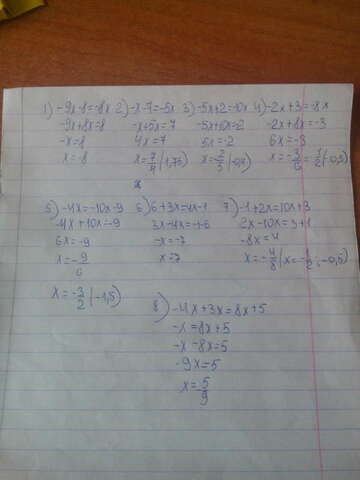 1) -9x-8=-8x
-9x+8x=8
-x=8
x=-8
2) -x-7=-5x
-x+5x=7
4x=7
x=7/4 (1,75)
3) -5x+2=-10x
-5x+10x=-2
5x=-2
x=-2/5 (-0,4)
4) -2x+3=-8x
-2x+8x=-3
6x=-3
x=-3/6=1/2 (-0,5)
5) -4x=-10x-9
-4x+10x=-9
6x=-9
x=-9/6
x=-3/2 (-1,5)
6) 6+3x=4x-1
3x-4x=-1-6
-x=-7
x=7
7) -1+2x=10x+3
2x-10x=3+1
-8x=4
x=-4/8 (x=-1/2; -0,5)
8) -4x+3x=8x+5
-x=8x+5
-x-8x=5
-9x=5
x=5/9